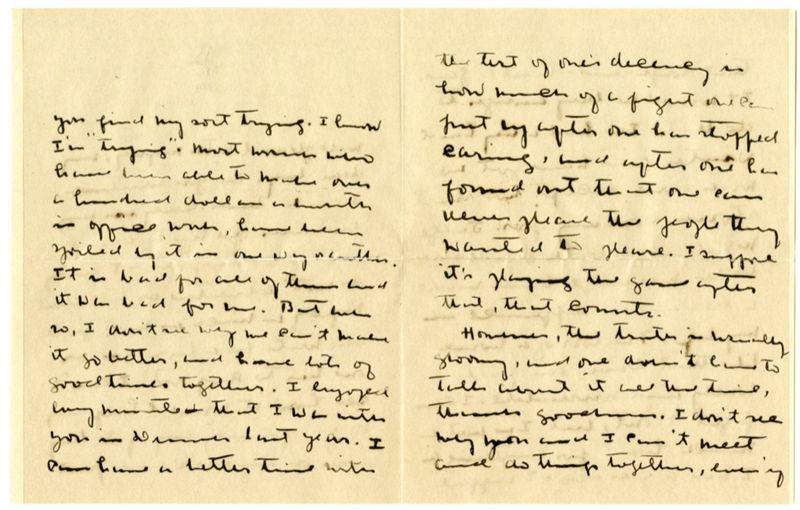 you find my sort trying. I know
I'm "trying". Most women who
have been able to make over
a hundred dollars a month
in office work, have been
spoiled by it in one way or another.
It is bad for all of them and
it was bad for me. But even
so, I don't see why we can't make
it go better, and have lots of
good times together. I enjoyed
every minute that I was with
you in Denver last year. I
can have a better time with
the test of one's decency is
how much of a fight one can
put up after one has stopped
caring, and after one has
found out that one can
never please the people they
wanted to please. I suppose
it's playing the game after
that, that counts.
However, the truth is usually
gloomy, and one doesn't have to
talk about it all the time,
thank goodness. I don't see
why you and I can't meet
and do things together, even if